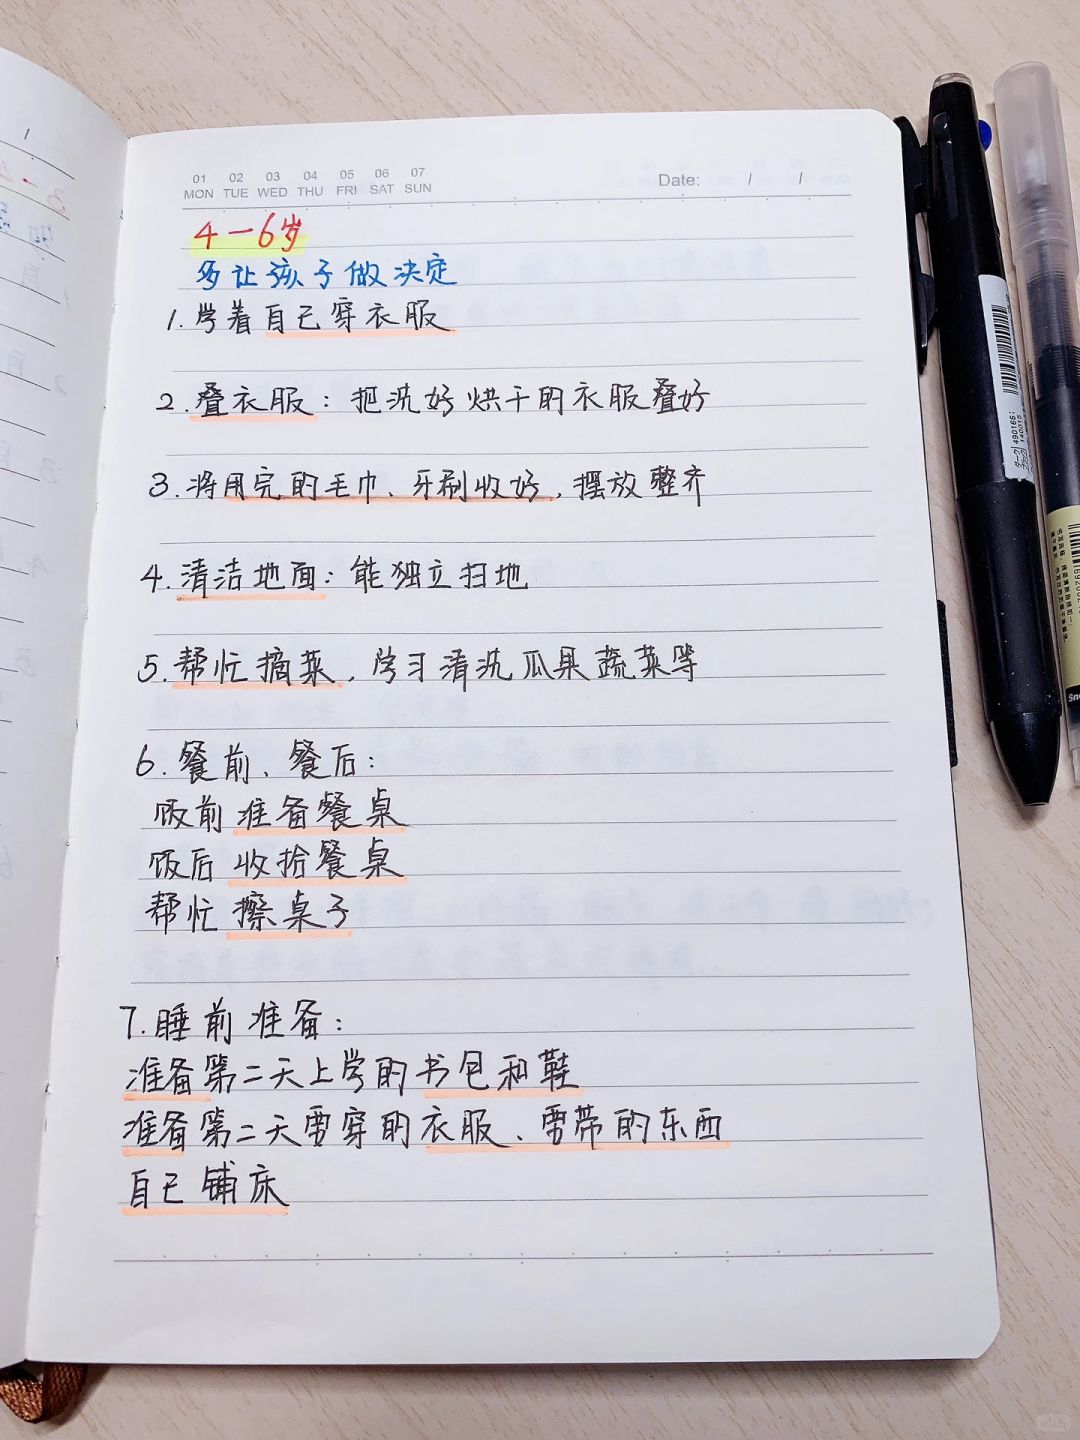 01 02 03 04 05 06 07
MON TUE WED THU FRI SAT SUN
Date: / /
4一6岁
多让孩子做决定
1.学着自己穿衣服
2.叠衣服：把洗好烘干的衣服叠好
3.将用完的毛巾、牙刷收好，摆放整齐
4.清洁地面：能独立扫地
5.帮忙摘菜，学习清洗瓜果蔬菜等
6.餐前、餐后：
饭前准备餐桌
饭后收拾餐桌
帮忙擦桌子
7.睡前准备：
准备第二天上学的书包和鞋
准备第二天要穿的衣服、要带的东西
自己铺床